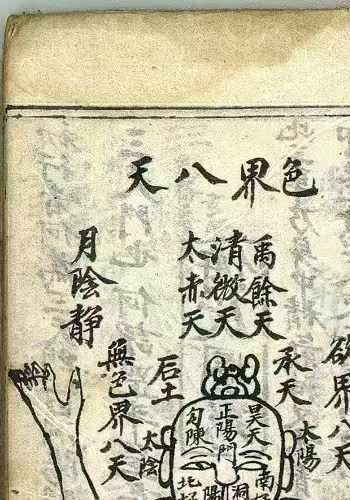 色界八天
欲界八
禹餘天
清微天
太赤天
月陰静
承天
太陽
石土
無色界八天
太陰
吴天
正陽門
勾陳
南
洞
陽
北